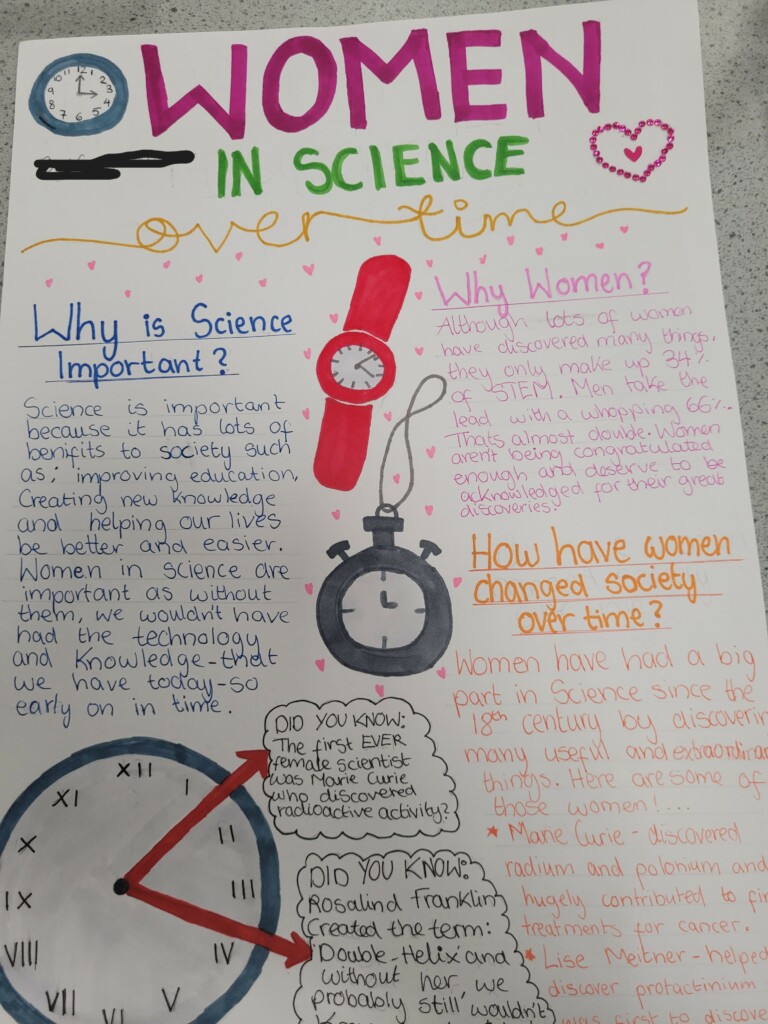 WOMEN
IN SCIENCE
over time
12
1
2
3
4
5
6
7
8
9
10
11
Why is Science
Important?
Science is important
because it has lots of
benifits to society such
as; improving education,
Creating new knowledge
and helping our lives
be better and easier.
Women in science are
important as without
them, we wouldn't have
had the technology
and Knowledge-that
we have today-so
early on in time.
Why Women?
Although lots of women
have discovered many things,
they only make up 34%
of STEM. Men take the
lead with a whopping 66%.
Thats almost double. Women
aren't being congratulated
enough and deserve to be
acknowledged for their great
discoveries.
How have women
changed society
over time?
Women have had a big
part in Science since the
18th century by discoverin
many useful and extraordinar
things. Here are some of
those women!...
* Marie Curie - discovered
radium and polonium and
hugely contributed to fin
treatments for cancer.
* Lise Meitner - helped
discover protactinium
was first to discove
DID YOU KNOW:
The first EVER
female scientist
was Marie Curie
who discovered
radioactive activity?
DID YOU KNOW:
Rosalind Franklin
Created the term:
'Double-Helix' and
without her, we
probably still wouldn't
XII
I
II
III
IV
V
VI
VII
VIII
IX
X
XI